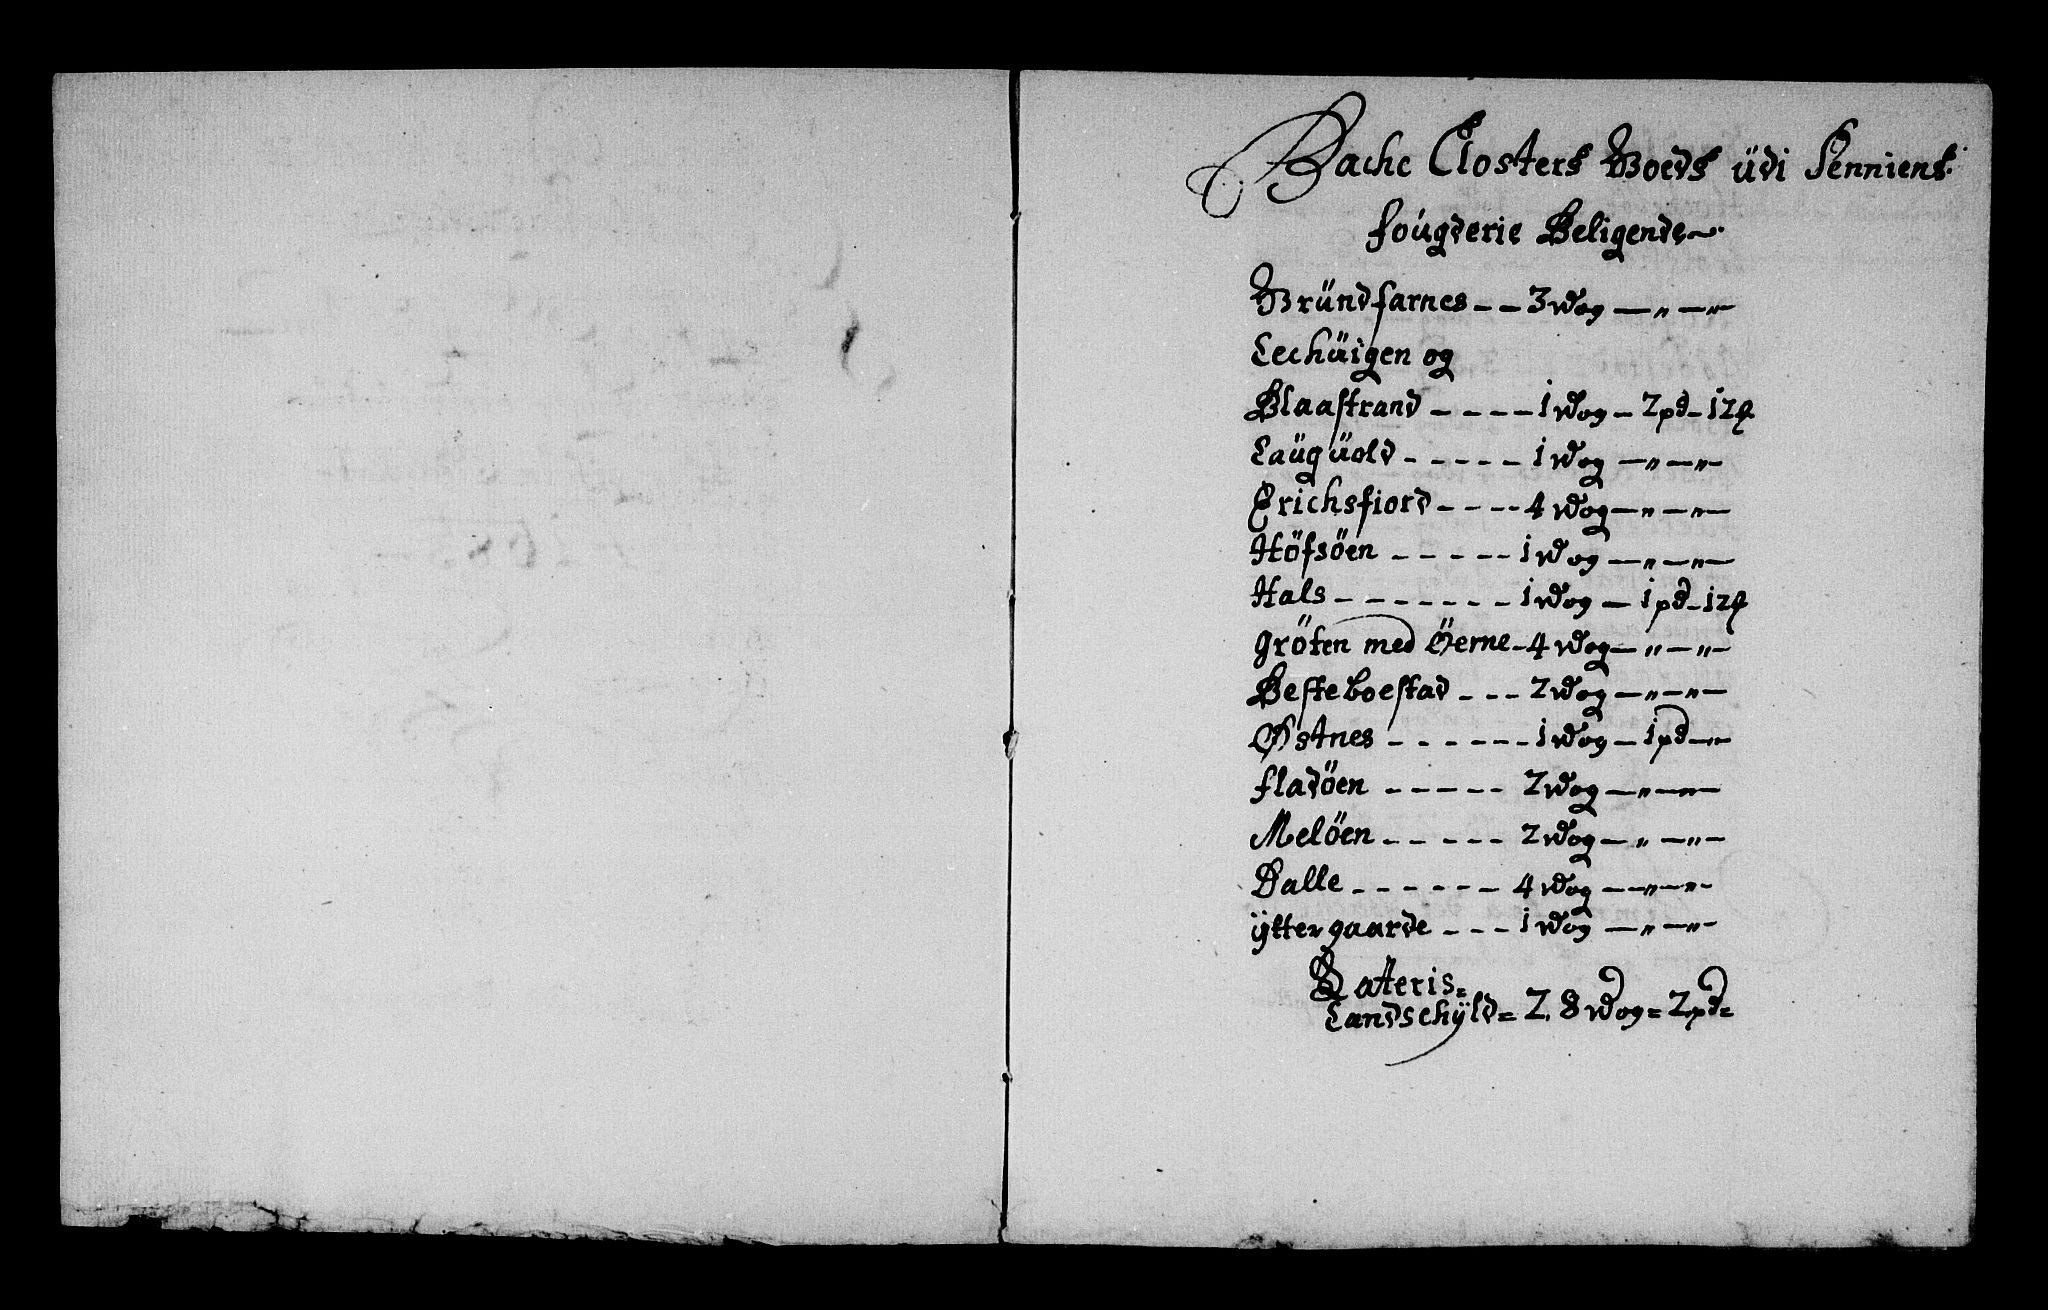 Bache Closters Goeds üdi Senniens
fougderie Beligende
Gründfarnes -- 3 wog — " — "
Lechüigen og
Blaastrand ---- 1 wog - 2 pd - 12 ℔
Laügüold ----- 1 wog — " — "
Erichsfiord ---- 4 wog — " — "
Höfsöen ----- 1 wog — " — "
Hals ------- 1 wog — 1 pd - 12 ℔
gröten med Öerne - 4 wog — " — "
Besteboestad --- 2 wog — " — "
Østnes ------ 1 wog — 1 pd — "
fladöen ----- 2 wog — " — "
Melöen ----- 2 wog — " — "
Dalle ------ 4 wog — " — "
ÿttergaarde --- 1 wog — " — "
Latteris =
Landschÿld = 28 wog = 2 pd =